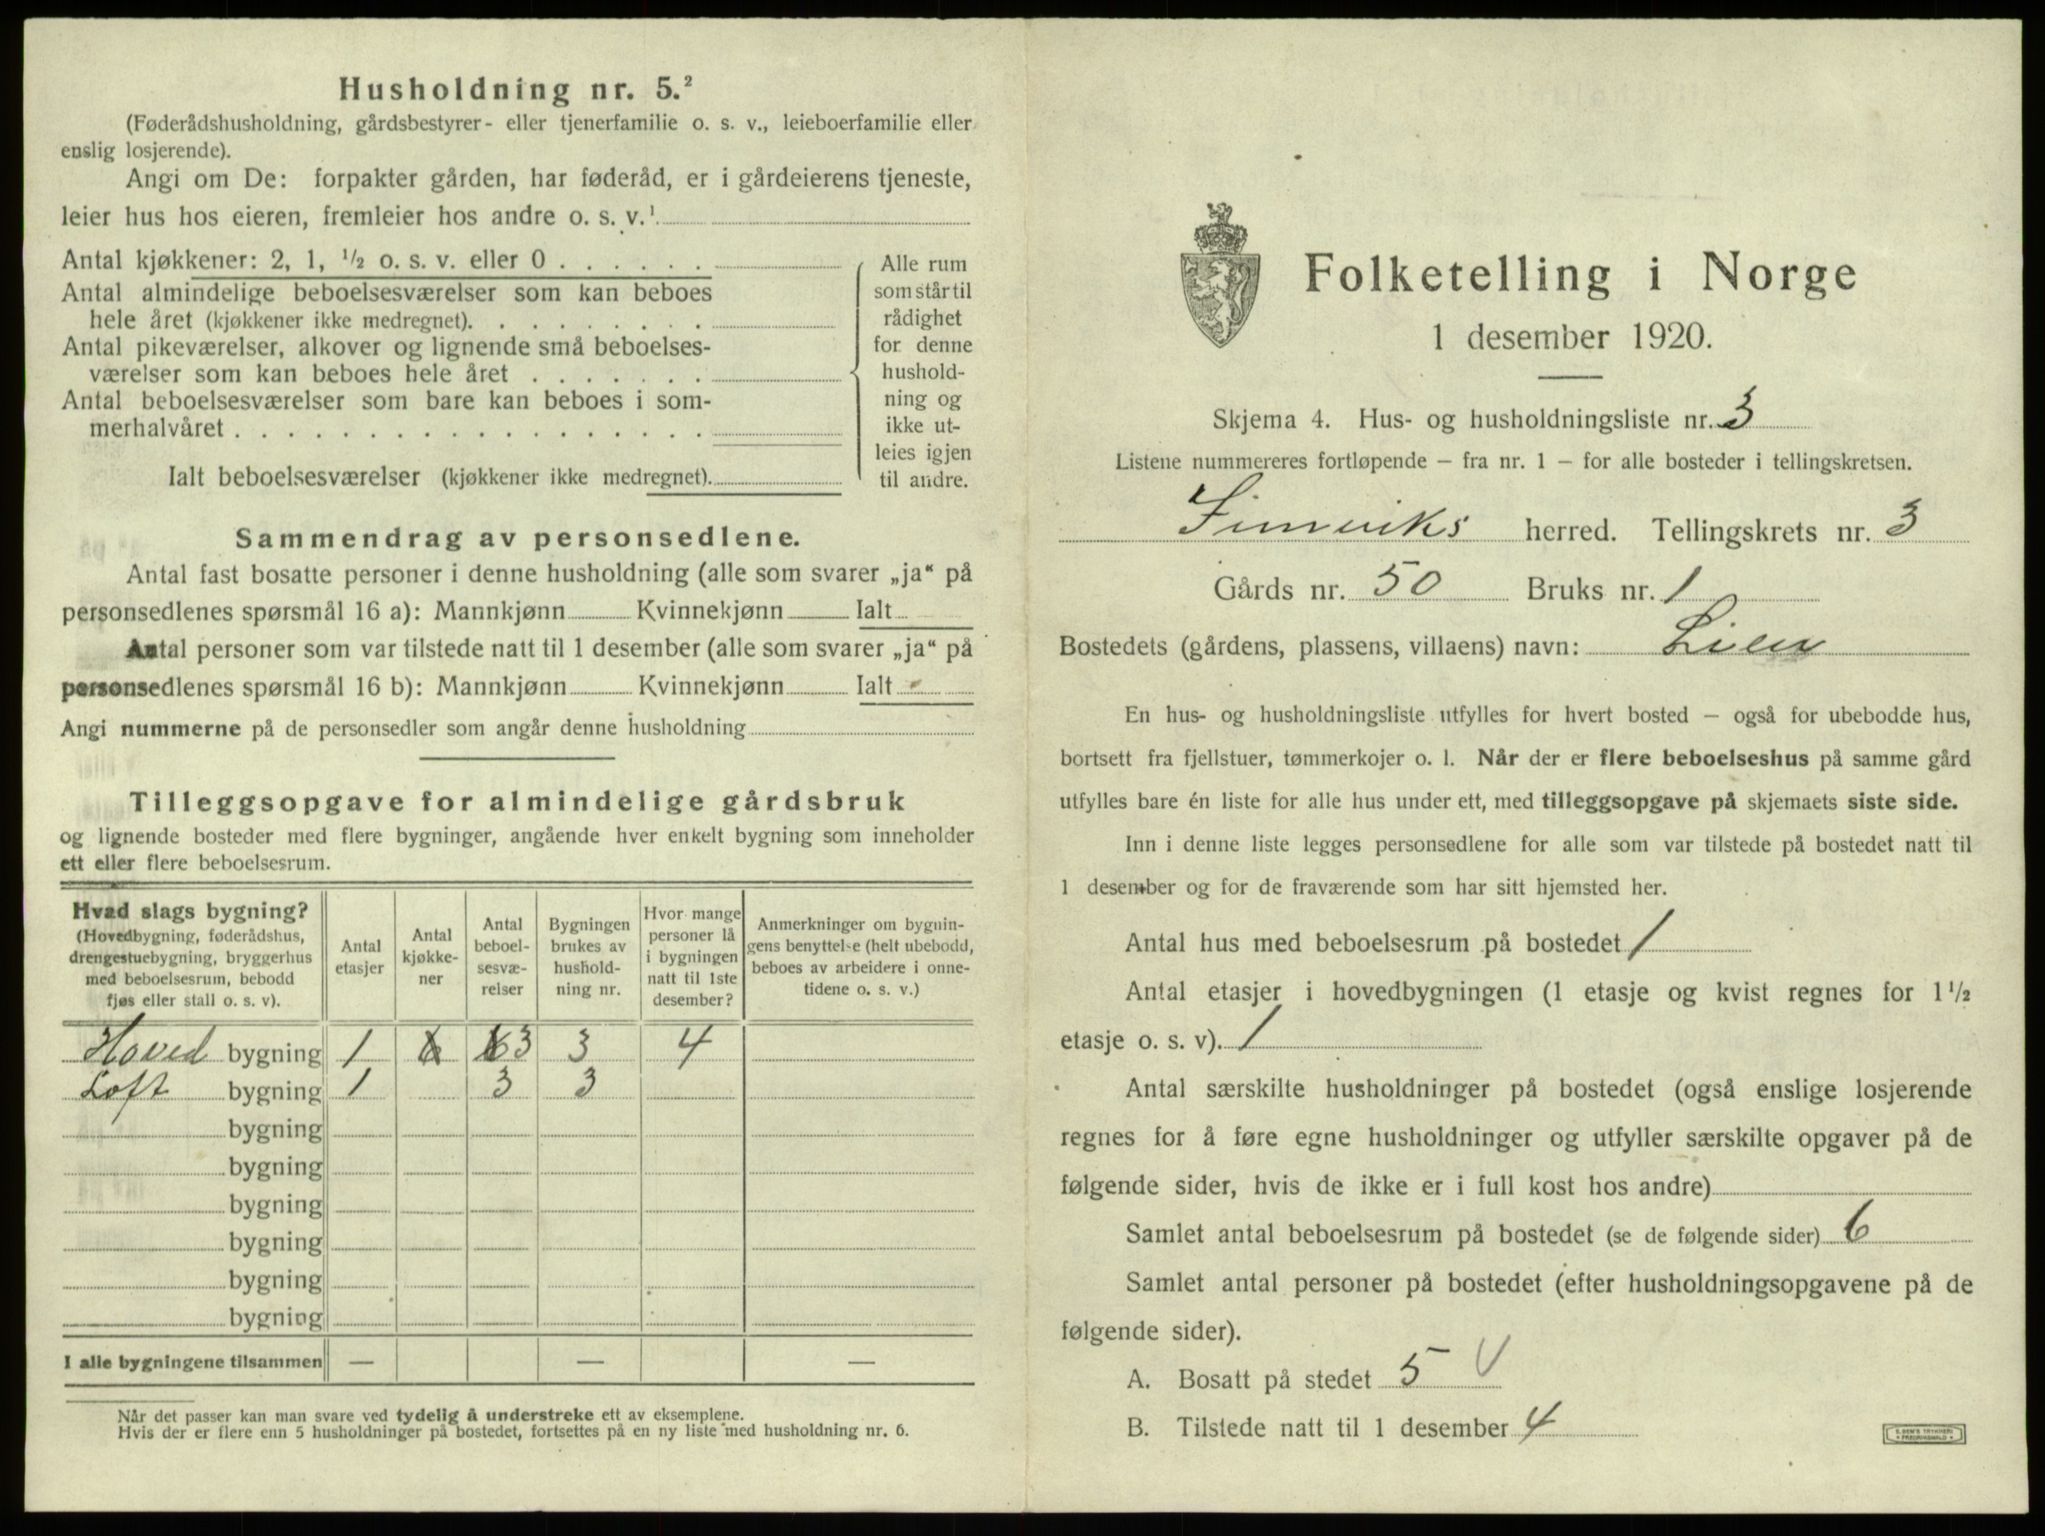 Husholdning nr. 5.²
(Føderådshusholdning, gårdsbestyrer- eller tjenerfamilie o. s. v., leieboerfamilie eller
enslig losjerende).
Angi om De: forpakter gården, har føderåd, er i gårdeierens tjeneste,
leier hus hos eieren, fremleier hos andre o. s. v.¹
Antal kjøkkener: 2, 1, ½ o. s. v. eller 0 . . . . . .
Antal almindelige beboelsesværelser som kan beboes
hele året (kjøkkener ikke medregnet). . . . . . . . .
Antal pikeværelser, alkover og lignende små beboelses-
værelser som kan beboes hele året . . . . . . .
Antal beboelsesværelser som bare kan beboes i som-
merhalvåret . . . . . . . . . . . . . . . . . .
Ialt beboelsesværelser (kjøkkener ikke medregnet).
Alle rum
som står til
rådighet
for denne
hushold-
ning og
ikke ut-
leies igjen
til andre.
Sammendrag av personsedlene.
Antal fast bosatte personer i denne husholdning (alle som svarer „ja“ på
personsedlenes spørsmål 16 a): Mannkjønn Kvinnekjønn Ialt
Antal personer som var tilstede natt til 1 desember (alle som svarer „ja“ på
personsedlenes spørsmål 16 b): Mannkjønn Kvinnekjønn Ialt
Angi nummerne på de personsedler som angår denne husholdning
Tilleggsopgave for almindelige gårdsbruk
og lignende bosteder med flere bygninger, angående hver enkelt bygning som inneholder
ett eller flere beboelsesrum.
Hvad slags bygning?
(Hovedbygning, føderådshus,
drengestuebygning, bryggerhus
med beboelsesrum, bebodd
fjøs eller stall o. s. v).
Antal
etasjer
Antal
kjøkke-
ner
Antal
beboel-
sesvæ-
relser
Bygningen
brukes av
hushold-
ning nr.
Hvor mange
personer lå
i bygningen
natt til 1ste
desember?
Anmerkninger om bygnin-
gens benyttelse (helt ubebodd,
beboes av arbeidere i onne-
tidene o. s. v.)
Hoved bygning 1 3 3 4
Loft bygning 1 3 3
bygning
bygning
bygning
bygning
bygning
bygning
I alle bygningene tilsammen — — —
Når det passer kan man svare ved tydelig å understreke ett av eksemplene.
Hvis der er flere enn 5 husholdninger på bostedet, fortsettes på en ny liste med husholdning nr. 6.
Folketelling i Norge
1 desember 1920.
Skjema 4. Hus- og husholdningsliste nr. 3
Listene nummereres fortløpende – fra nr. 1 – for alle bosteder i tellingskretsen.
herred. Tellingskrets nr. 3
Gårds nr. 50 Bruks nr. 1
Bostedets (gårdens, plassens, villaens) navn: Lien
En hus- og husholdningsliste utfylles for hvert bosted – også for ubebodde hus,
bortsett fra fjellstuer, tømmerkojer o. l. Når der er flere beboelseshus på samme gård
utfylles bare én liste for alle hus under ett, med tilleggsopgave på skjemaets siste side.
Inn i denne liste legges personsedlene for alle som var tilstede på bostedet natt til
1 desember og for de fraværende som har sitt hjemsted her.
Antal hus med beboelsesrum på bostedet 1
Antal etasjer i hovedbygningen (1 etasje og kvist regnes for 1½
etasje o. s. v). 1
Antal særskilte husholdninger på bostedet (også enslige losjerende
regnes for å føre egne husholdninger og utfyller særskilte opgaver på de
følgende sider, hvis de ikke er i full kost hos andre)
Samlet antal beboelsesrum på bostedet (se de følgende sider) 6
Samlet antal personer på bostedet (efter husholdningsopgavene på de
følgende sider).
A. Bosatt på stedet 5 V
B. Tilstede natt til 1 desember 4